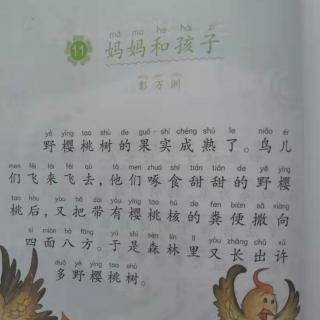 mā ma hé hái zi
11 妈妈和孩子
彭万洲
yě yīng táo shù de guǒ shí chéng shú le niǎo ér
野樱桃树的果实成熟了。鸟儿
men fēi lái fēi qù tā men zhuó shí tián tián de yě yīng
们飞来飞去,他们啄食甜甜的野樱
táo hòu yòu bǎ dài yǒu yīng táo hé de fèn biàn sǎ xiàng
桃后,又把带有樱桃核的粪便撒向
sì miàn bā fāng yú shì sēn lín lǐ yòu zhǎng chū xǔ
四面八方。于是森林里又长出许
duō yě yīng táo shù
多野樱桃树。